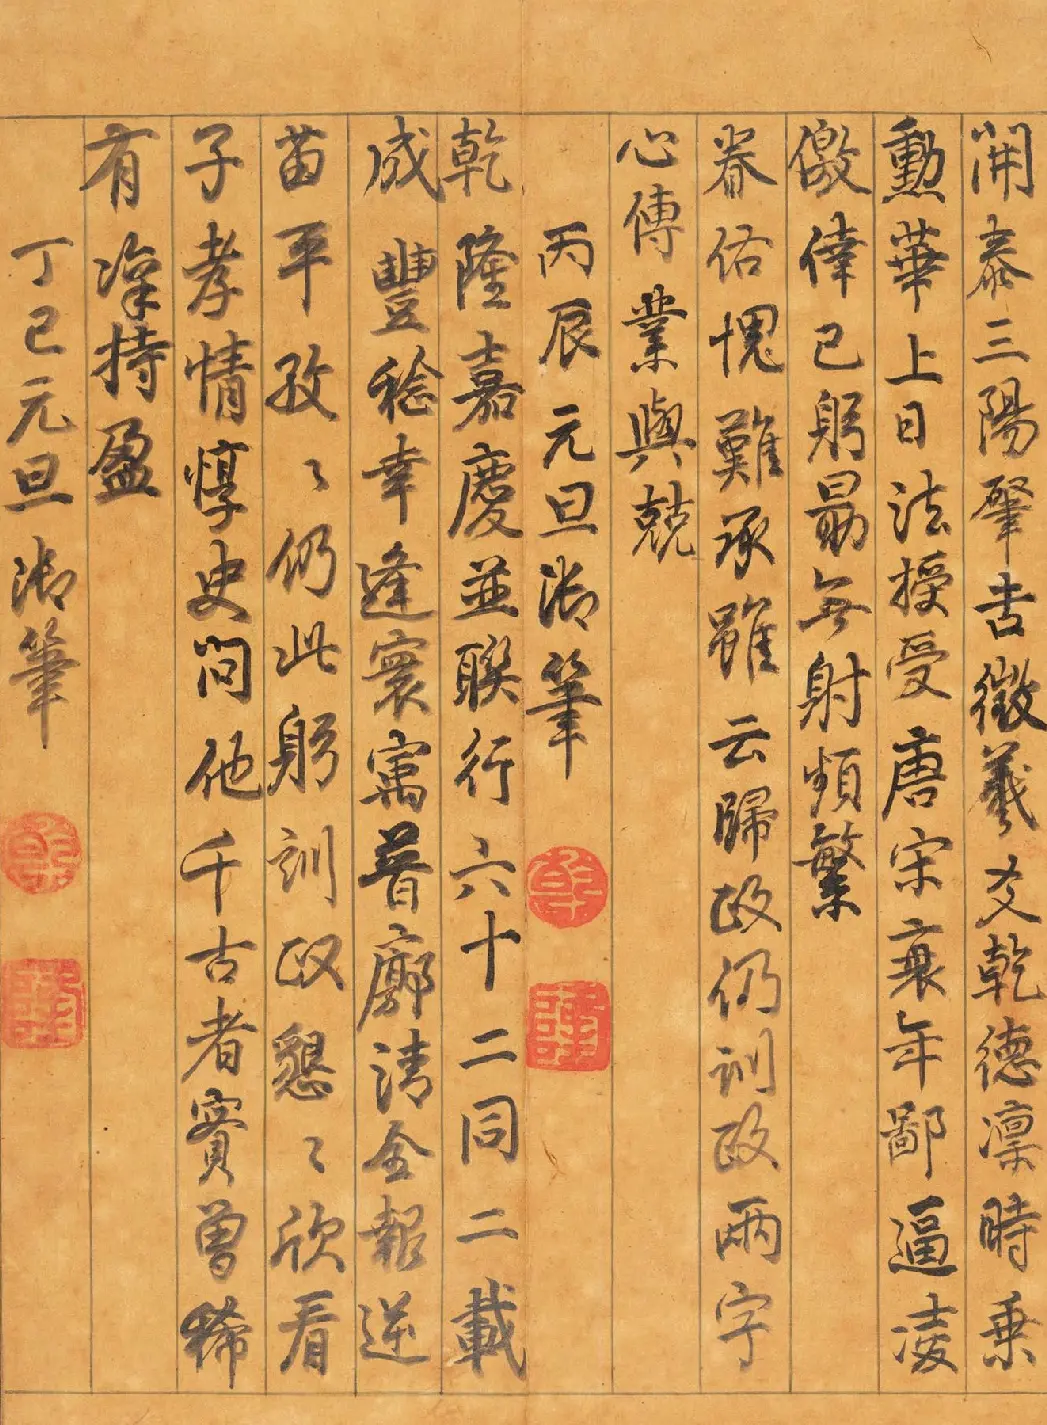 開泰三陽肇吉徵羲爻乾德凜時乗
勳華上日法授受唐宋衰年鄙逼凌
儌倖已躬勗無射頻繁
眷佑愧難承雖云歸政仍訓政兩字
心傳業與兢
丙辰元旦御筆
乾隆嘉慶並聯行六十二同二載
成豐稔幸逢寰寓普廓清全報逆
苗平孜〻仍此躬訓政懇〻欣看
子孝情惇史問他千古者賓曽稀
有凜持盈
丁巳元旦御筆